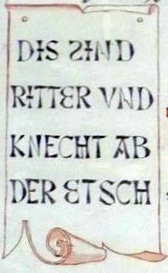 DIS SIND
RITTER VND
KNECHT AB
DER ETSCH